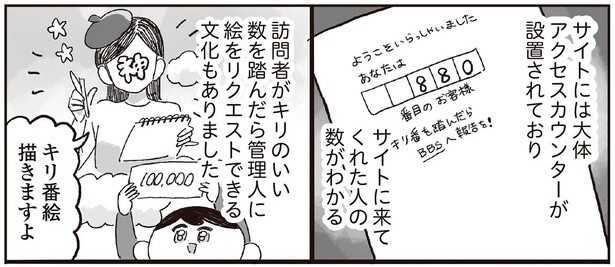 サイトには大体
アクセスカウンターが
設置されており
ようこそいらっしゃいました
あなたは
880
番目のお客様
キリ番も踏んだら
BBSへ報告を!
サイトに来て
くれた人の
数がわかる
訪問者がキリのいい
数を踏んだら管理人に
絵をリクエストできる
文化もありました
神
100,000
キリ番絵
描きますよ